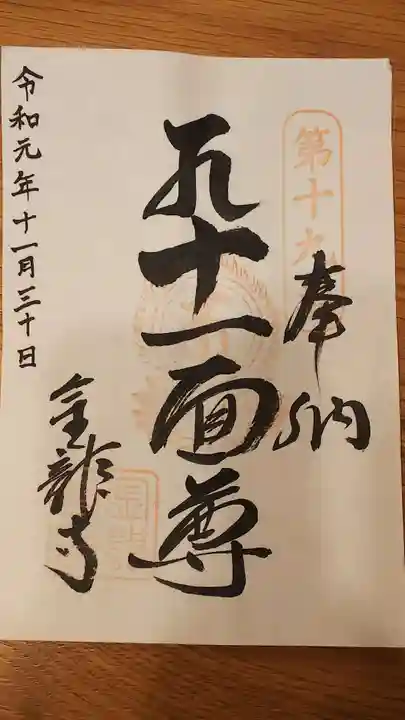 第十九
奉納
十一面尊
金龍寺
令和元年十一月三十日